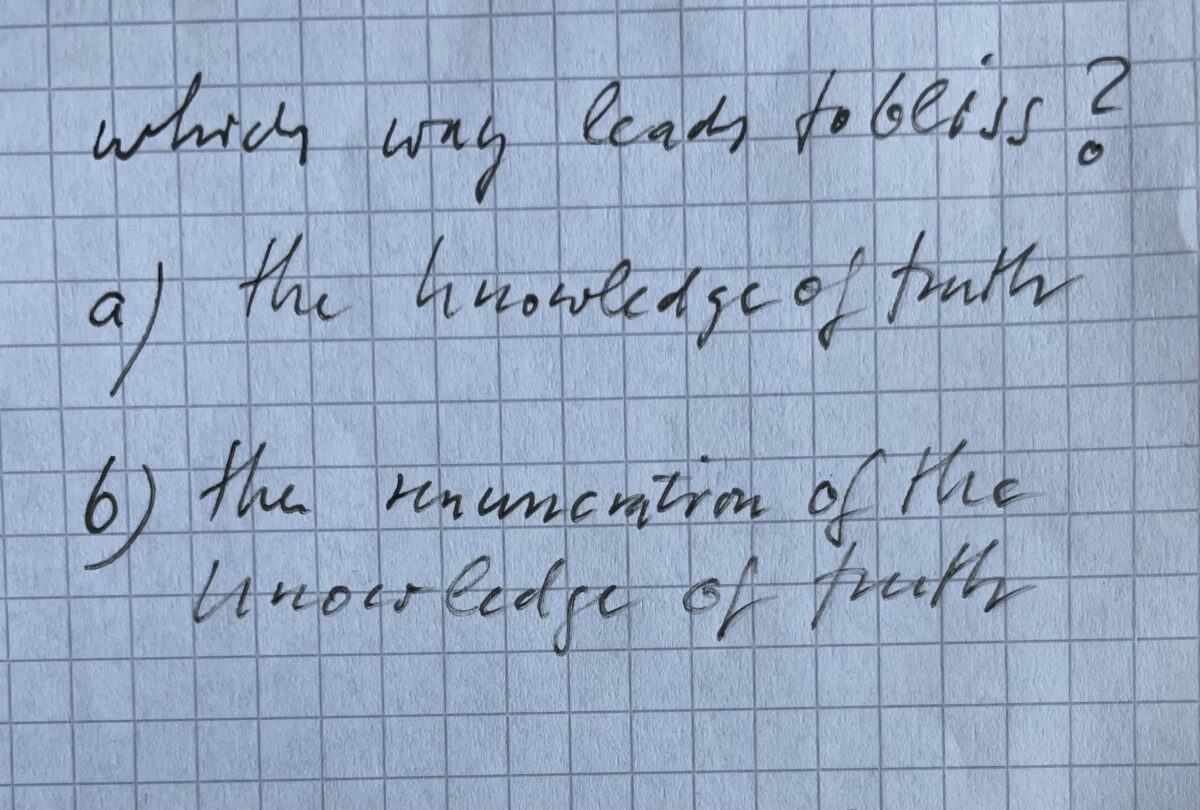 which way leads to bliss?
a) the knowledge of truth
b) the renunciation of the
knowledge of truth